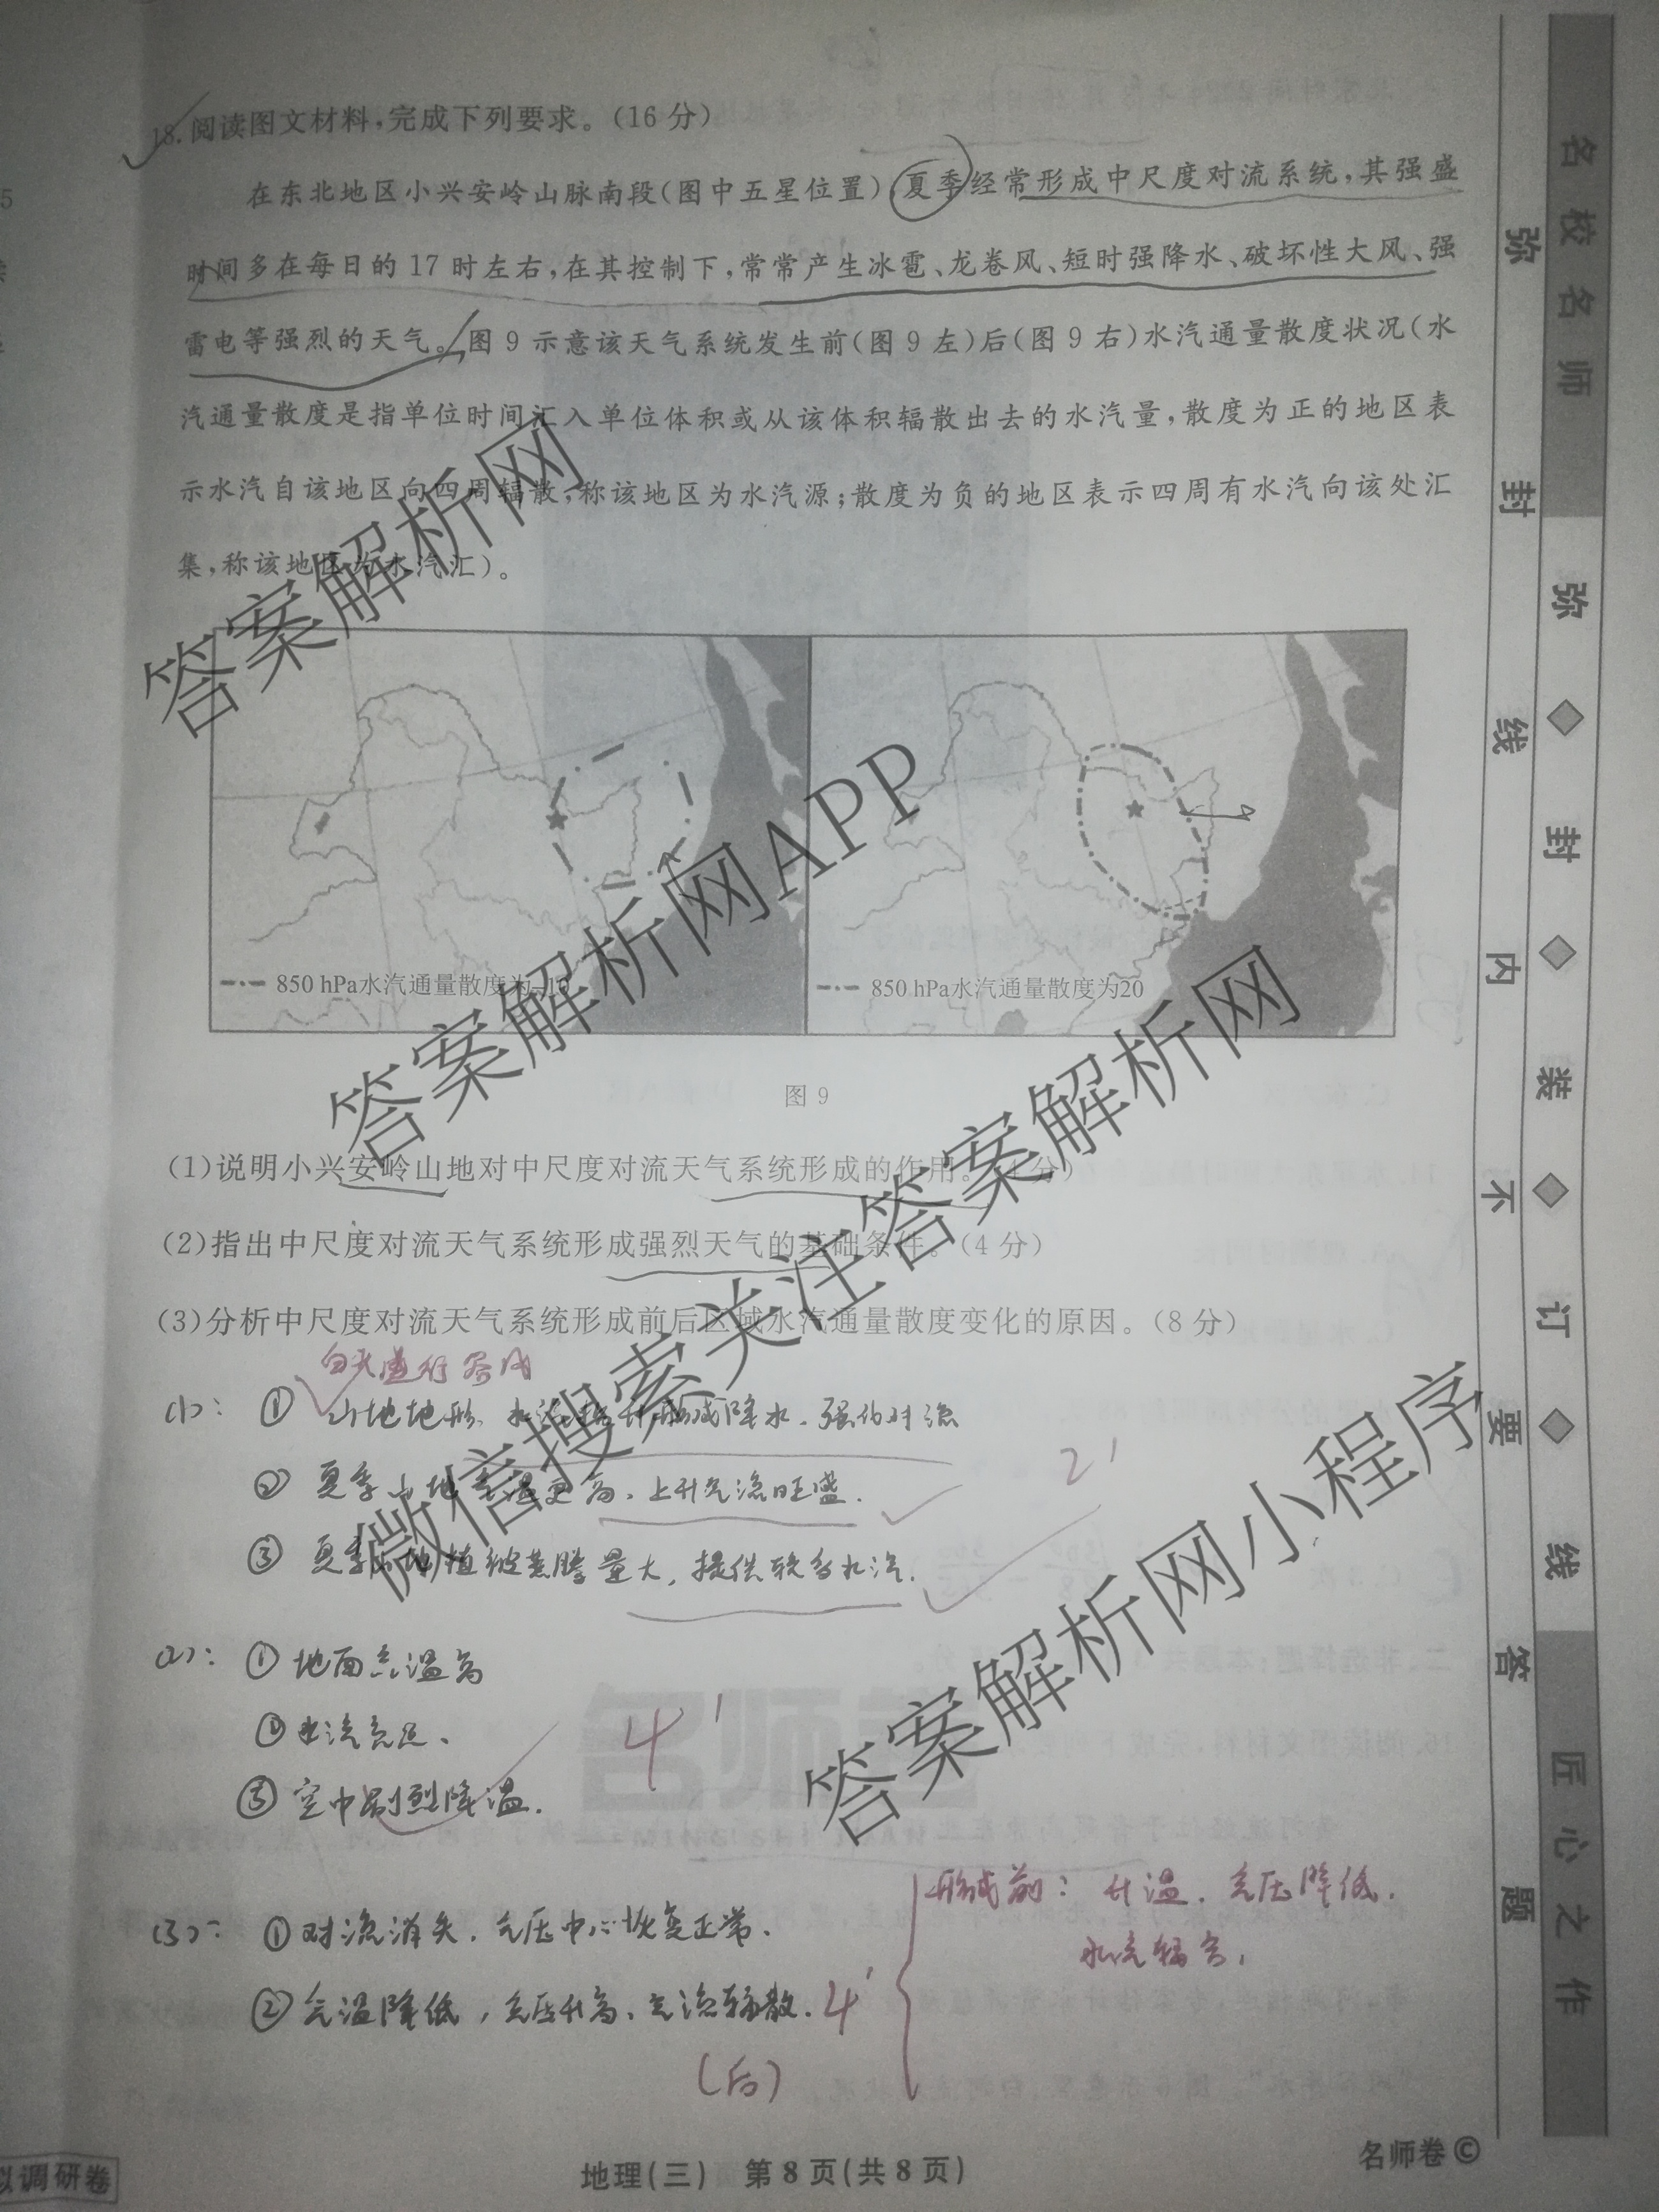 18.阅读图文材料,完成下列要求。(16分)
在东北地区小兴安岭山脉南段(图中五星位置),夏季经常形成中尺度对流系统,其强盛
时间多在每日的17时左右,在其控制下,常常产生冰雹、龙卷风、短时强降水、破坏性大风、强
雷电等强烈的天气。图9示意该天气系统发生前(图9左)后(图9右)水汽通量散度状况(水
汽通量散度是指单位时间汇入单位体积或从该体积辐散出去的水汽量,散度为正的地区表
示水汽自该地区向四周辐散,称该地区为水汽源;散度为负的地区表示四周有水汽向该处汇
集,称该地区为水汽汇)。
850 hPa水汽通量散度为-10
850 hPa水汽通量散度为20
图9
(1)说明小兴安岭山地对中尺度对流天气系统形成的作用。(4分)
(2)指出中尺度对流天气系统形成强烈天气的基础条件。(4分)
(3)分析中尺度对流天气系统形成前后区域水汽通量散度变化的原因。(8分)
(1): ① 山地地形、水汽抬升形成降水、强化对流
② 夏季山地气温更高、上升气流旺盛. 2'
③ 夏季山地植被蒸腾量大,提供较多水汽.
(2): ① 地面气温高
② 水汽充足、 4'
③ 空中剧烈降温.
(3): ① 对流消失,气压中心恢复正常、
② 气温降低,气压升高、气流辐散. 4'
(后)
形成前: 升温、气压降低.
地理(三) 第8页(共8页)
名师卷©
拟调研卷
名校名师
弥◆封◆装◆订◆线
匠心之作
弥封线内不要答题
答案解析网
答案解析网APP
微信搜索关注答案解析网
答案解析网小程序